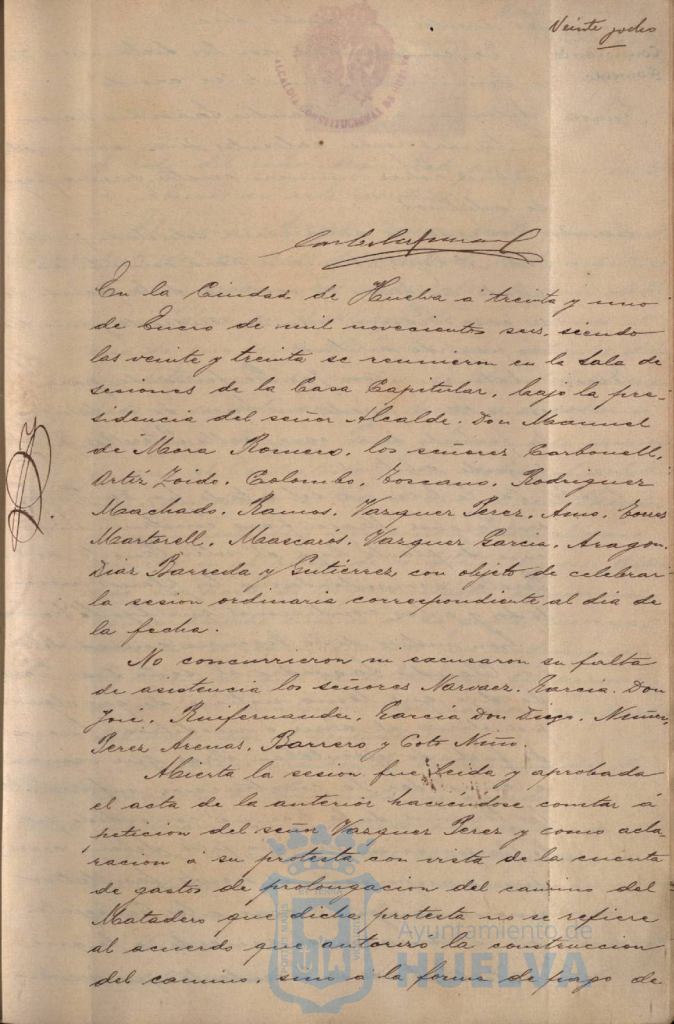 Veinte y ocho
ALCALDIA CONSTITUCIONAL DE HUELVA
En la Ciudad de Huelva á treinta y uno
de Enero de mil novecientos seis, siendo
las veinte y treinta se reunieron en la Sala de
sesiones de la Casa Capitular, bajo la pre-
sidencia del señor Alcalde, Don Manuel
de Mora Romero, los señores Carbonell,
Ortiz Zoido, Colombo, Toscano, Rodriguez
Machado, Ramos, Vazquez Perez, Amo, Torres
Martorell, Mascarós, Vazquez Garcia, Aragon,
Diaz Barreda y Gutiérrez, con objeto de celebrar
la sesion ordinaria correspondiente al dia de
la fecha.
No concurrieron ni excusaron su falta
de asistencia los señores Narvaez, Garcia Don
José, Ruifernandez, Garcia Don Diego, Nuñez,
Perez Arenas, Barrero y Coto Niño.
Abierta la sesion fue leida y aprobada
el acta de la anterior haciéndose constar á
peticion del señor Vazquez Perez y como acla-
racion á su protesta con vista de la cuenta
de gastos de prolongacion del camino del
Matadero que dicha protesta no se refiere
al acuerdo que autorizó la construccion
del camino, sinó á la forma de pago de
Ayuntamiento de
HUELVA